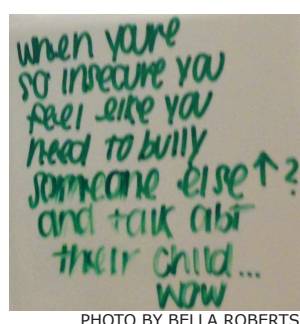 when you're
so insecure you
feel like you
need to bully
someone else↑?
and talk abt
their child...
wow
PHOTO BY BELLA ROBERTS